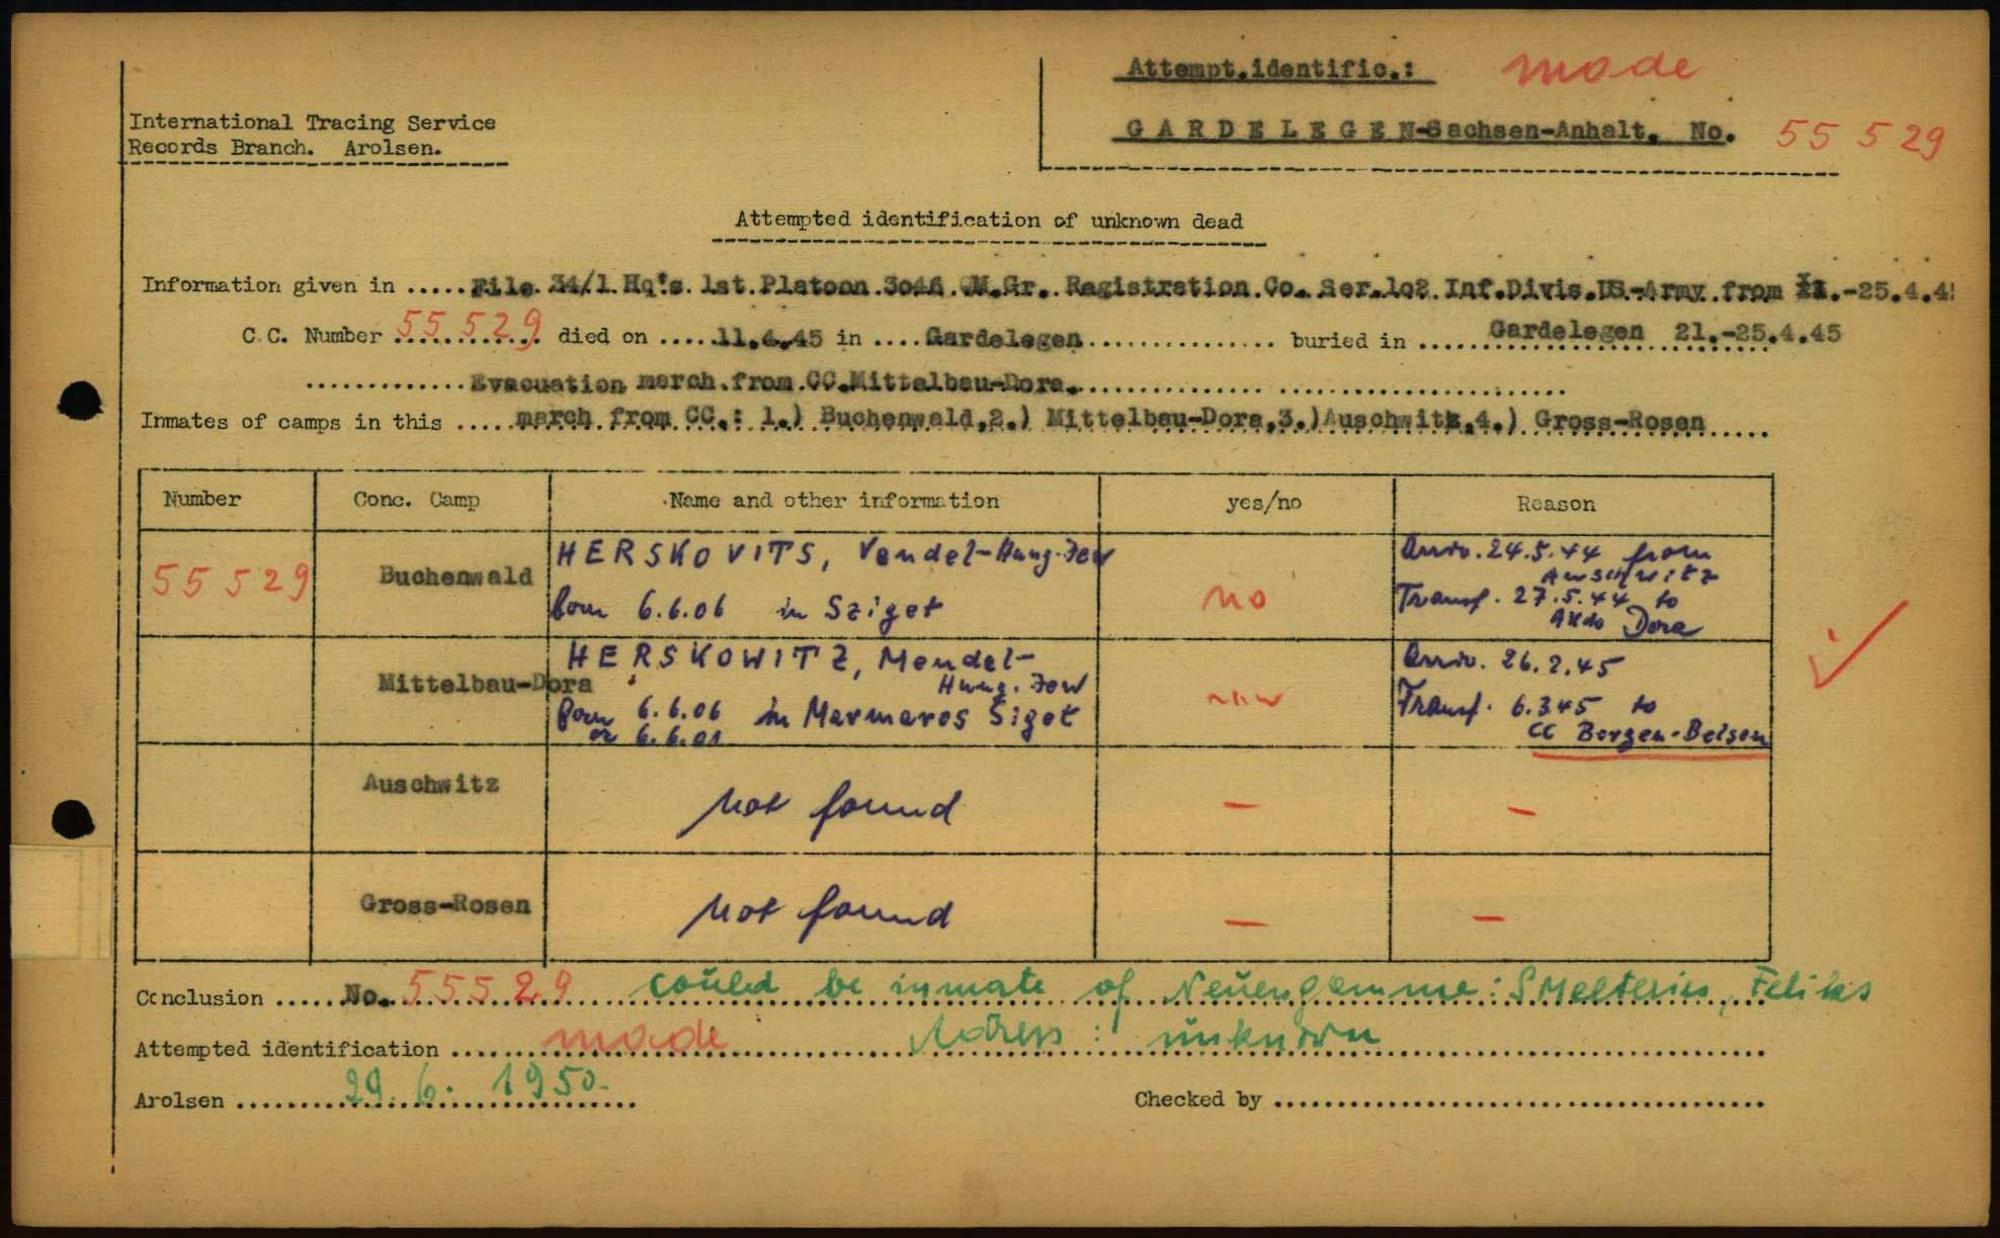 Attempt.identific.: made
International Tracing Service
Records Branch. Arolsen.
GARDELEGEN-Sachsen-Anhalt. No. 55 529
Attempted identification of unknown dead
Information given in ..... File 34/1 Hq's 1st Platoon 3046 QM.Gr. Registration Co. Ser.102 Inf.Divis.US-Army from 21.-25.4.4
C.C. Number 55 529 died on ..... 11.4.45 in .... Gardelegen ............... buried in ...... Gardelegen 21.-25.4.45
............. Evacuation march from CC.Mittelbau-Dora. ...............
Inmates of camps in this ..... march from CC.: 1.) Buchenwald,2.) Mittelbau-Dora,3.)Auschwitz,4.) Gross-Rosen .....
Number Conc. Camp Name and other information yes/no Reason
55 529 Buchenwald HERSKOVITS, Vendel-Hung.Jew
born 6.6.06 in Sziget
no
Arriv. 24.5.44 from
Auschwitz
Transf. 27.5.44 to
Dora
Mittelbau-Dora HERSKOWITZ, Mendel-
Hung. Jew
born 6.6.06 in Marmaros Siget
or 6.6.01
Arriv. 26.2.45
Transf. 6.3.45 to
CC Bergen-Belsen
Auschwitz not found — —
Gross-Rosen not found — —
Conclusion ...... No. 55529 could be inmate of Neuengamme: Feliks
Attempted identification ....... made Adress: unknown
Arolsen ........ 29.6.1950.
Checked by ......................................